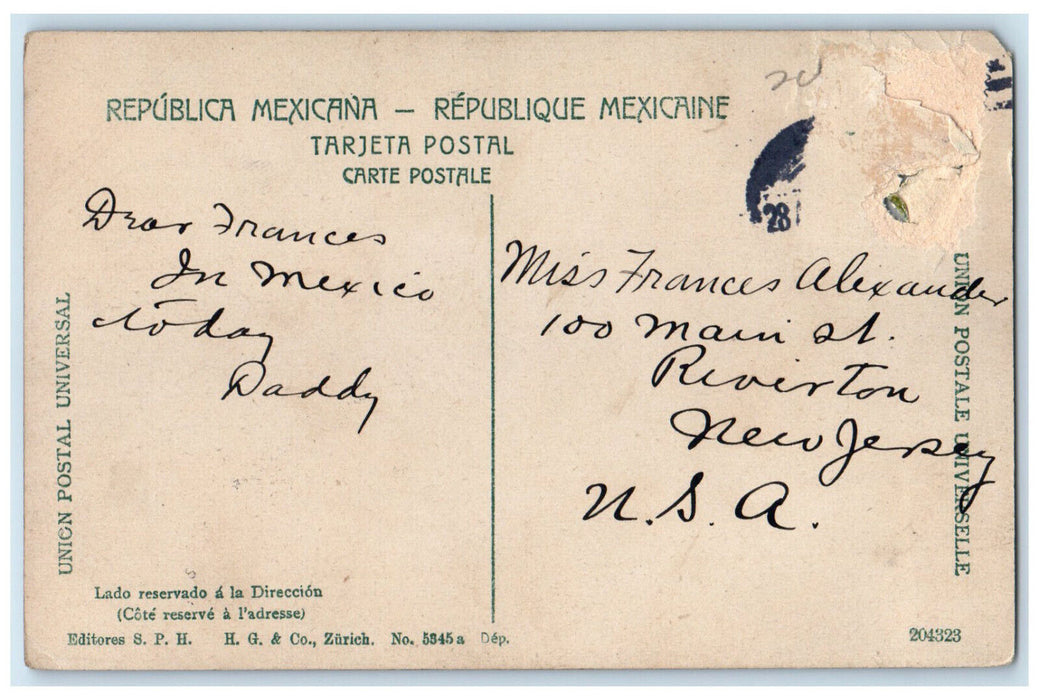 REPÚBLICA MEXICANA — RÉPUBLIQUE MEXICAINE
TARJETA POSTAL
CARTE POSTALE
28
Dear Frances
In Mexico
today
Daddy
Miss Frances Alexander
100 Main St.
Riverton
New Jersey
U.S.A.
UNION POSTAL UNIVERSAL
UNION POSTALE UNIVERSELLE
Lado reservado á la Dirección
(Côté reservé à l'adresse)
Editores S. P. H. H. G. & Co., Zürich. No. 5345a Dép.
204323